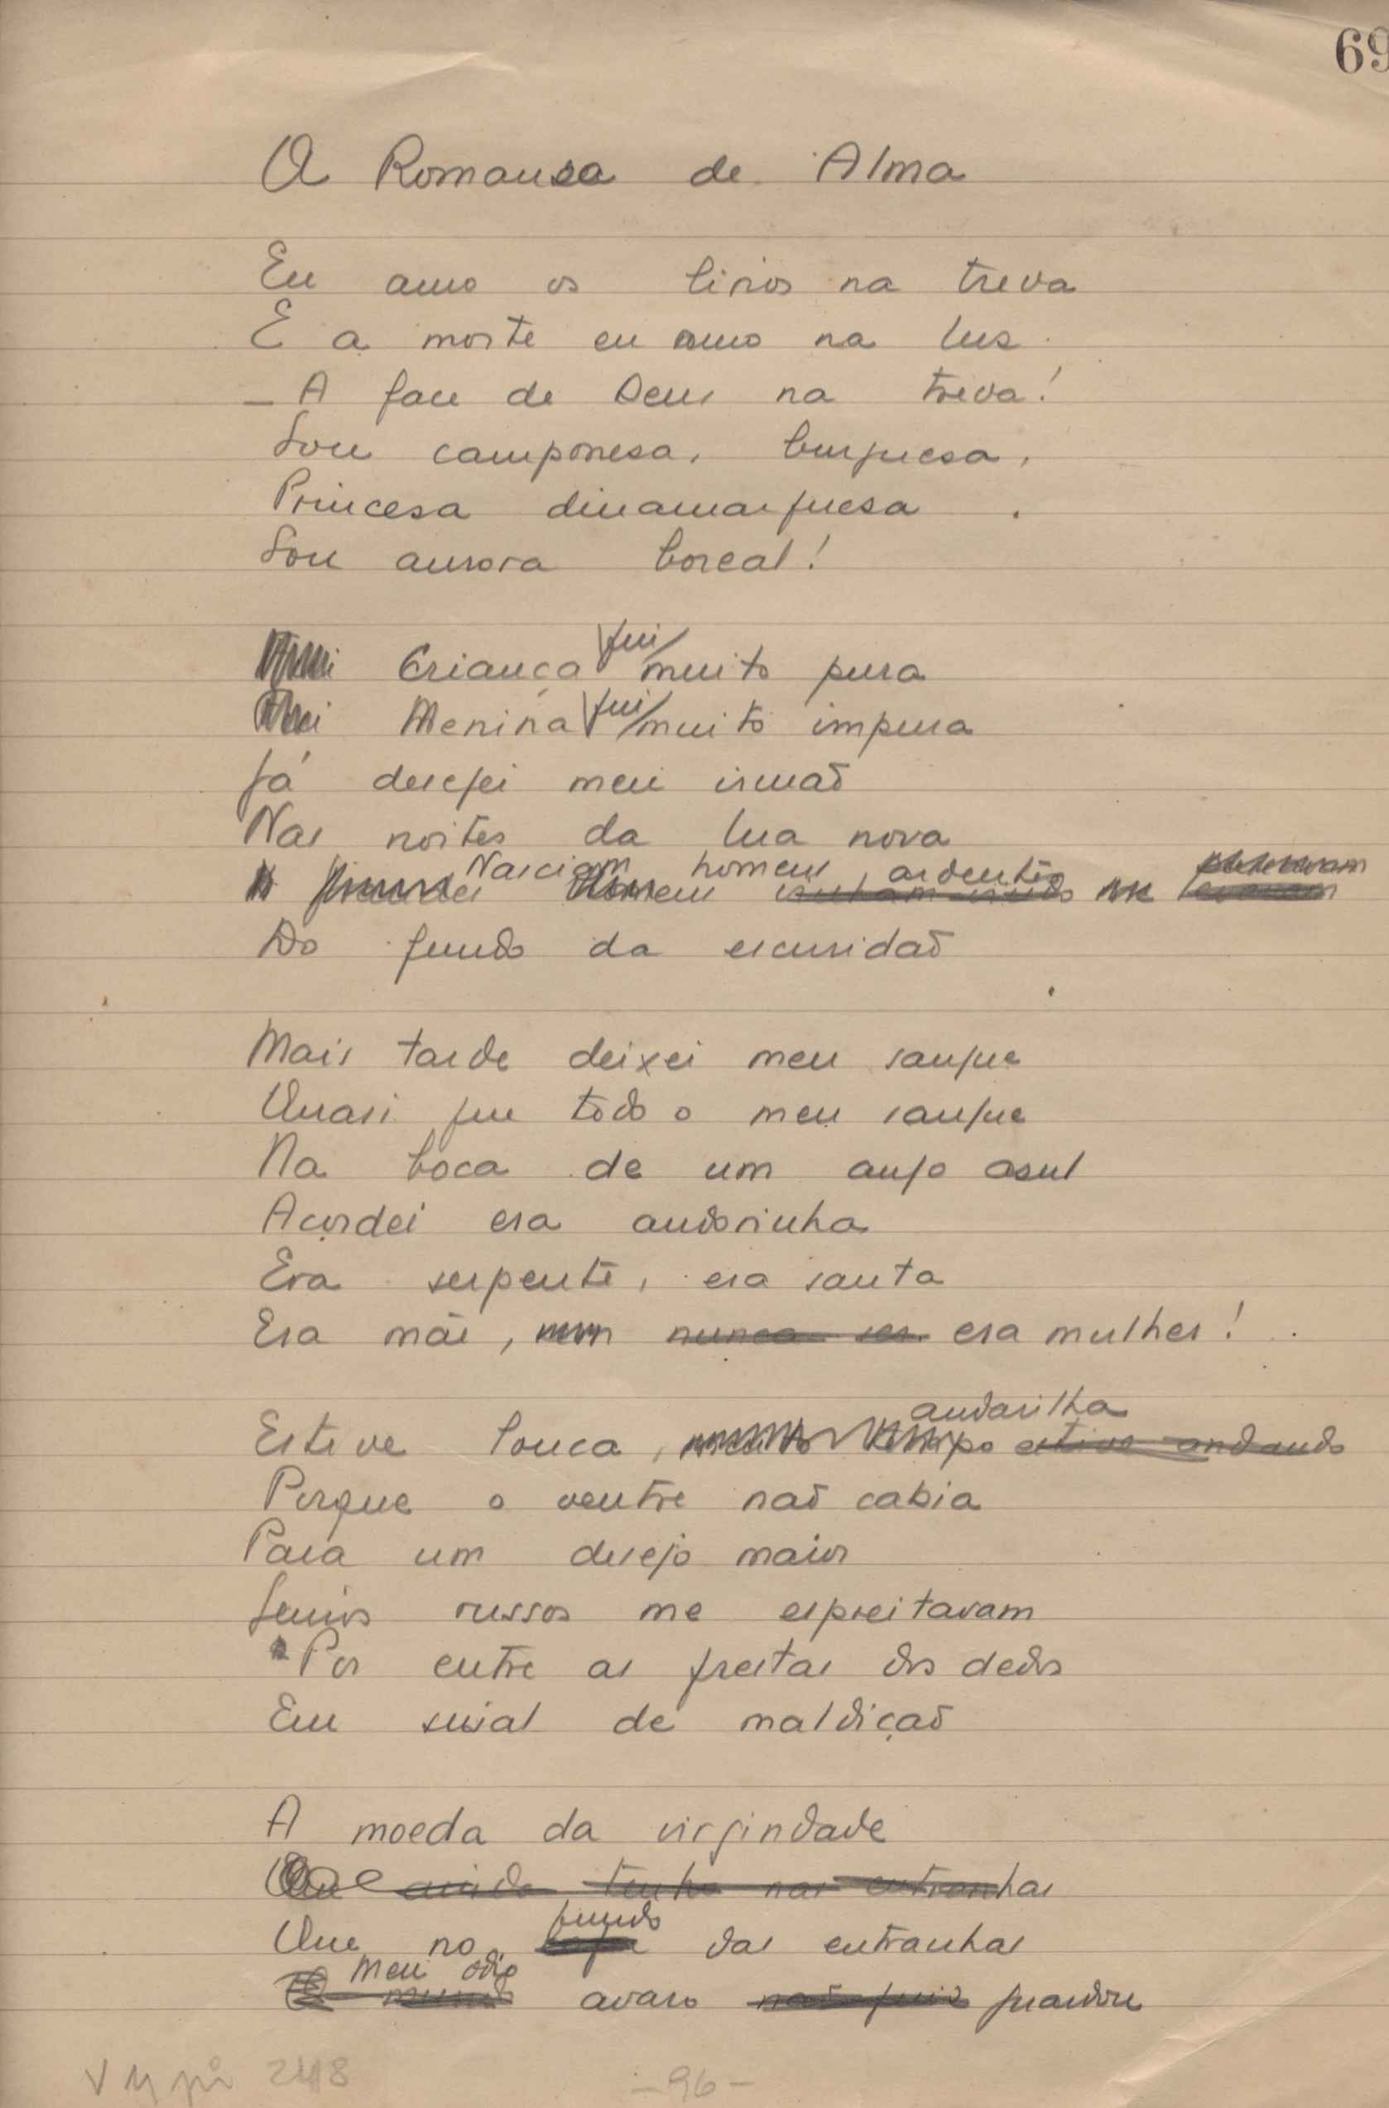 69
A Romanza de Alma
Eu amo os lirios na treva
E a morte eu amo na luz
— A face de Deus na treva!
Sou camponesa, burguesa,
Princesa dinamarquesa
Sou aurora boreal!
Criança fui muito pura
Menina fui muito impura
Já desejei meu irmão
Nas noites da lua nova
Nasciam homens ardentes
Do fundo da escuridão
Mais tarde deixei meu sangue
Quasi que todo o meu sangue
Na boca de um anjo azul
Acordei era andorinha
Era serpente, era santa
Era mãe, nunca ser era mulher!
Estive louca, andarilha estive andando
Porque o ventre não cabia
Para um desejo maior
Genios russos me espreitavam
Por entre as frestas dos dedos
Em sinal de maldição
A moeda da virgindade
Que ainda tenho nas entranhas
Que no fundo das entranhas
Meu odio avaro não quiz guardou
V M pi 248
-96-